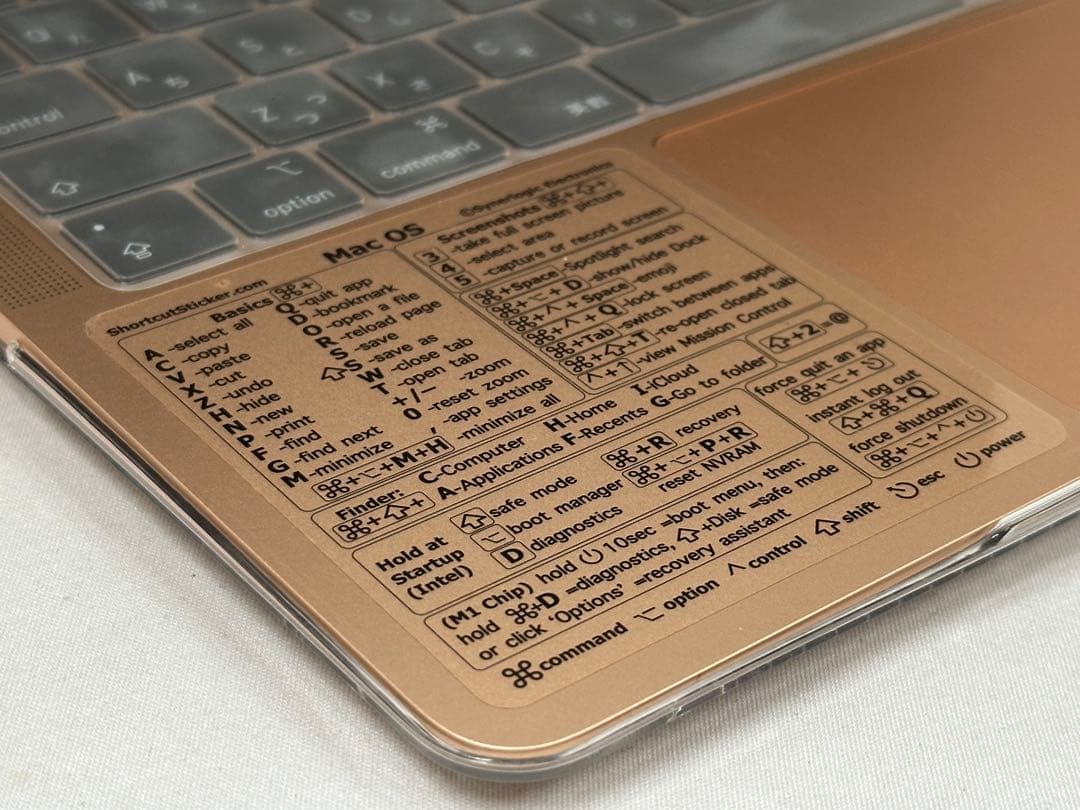 A ち
S と
Z つ
X さ
C そ
control
option
⌘
command
英数
ShortcutSticker.com
Mac OS
©Synerlogic Electronics
Basics ⌘+
A -select all
C -copy
V -paste
X -cut
Z -undo
H -hide
N -new
P -print
F -find
G -find next
M -minimize
Q -quit app
D -bookmark
O -open a file
R -reload page
S -save
⇧S -save as
W -close tab
T -open tab
+/− -zoom
0 -reset zoom
, -app settings
⌘+⌥+M+H -minimize all
Screenshots ⌘+⇧+
3 -take full screen picture
4 -select area
5 -capture or record screen
⌘+Space -Spotlight search
⌘+⌥+D -show/hide Dock
⌘+^+Space -emoji
⌘+^+Q -lock screen
⌘+Tab -switch between apps
⌘+⇧+T -re-open closed tab
^+↑ -view Mission Control
Finder:
⌘+⇧+
C-Computer H-Home I-iCloud
A-Applications F-Recents G-Go to folder
⇧+2=@
force quit an app
⌘+⌥+⎋
instant log out
⇧+⌘+Q
force shutdown
⌘+⌥+^+⏻
Hold at
Startup
(Intel)
⇧ safe mode
⌥ boot manager
D diagnostics
⌘+R recovery
⌘+⌥+P+R
reset NVRAM
(M1 Chip) hold ⏻ 10sec =boot menu, then:
hold ⌘+D =diagnostics, ⇧+Disk =safe mode
or click 'Options' =recovery assistant
⌘command ⌥ option ^ control ⇧ shift ⎋ esc ⏻ power